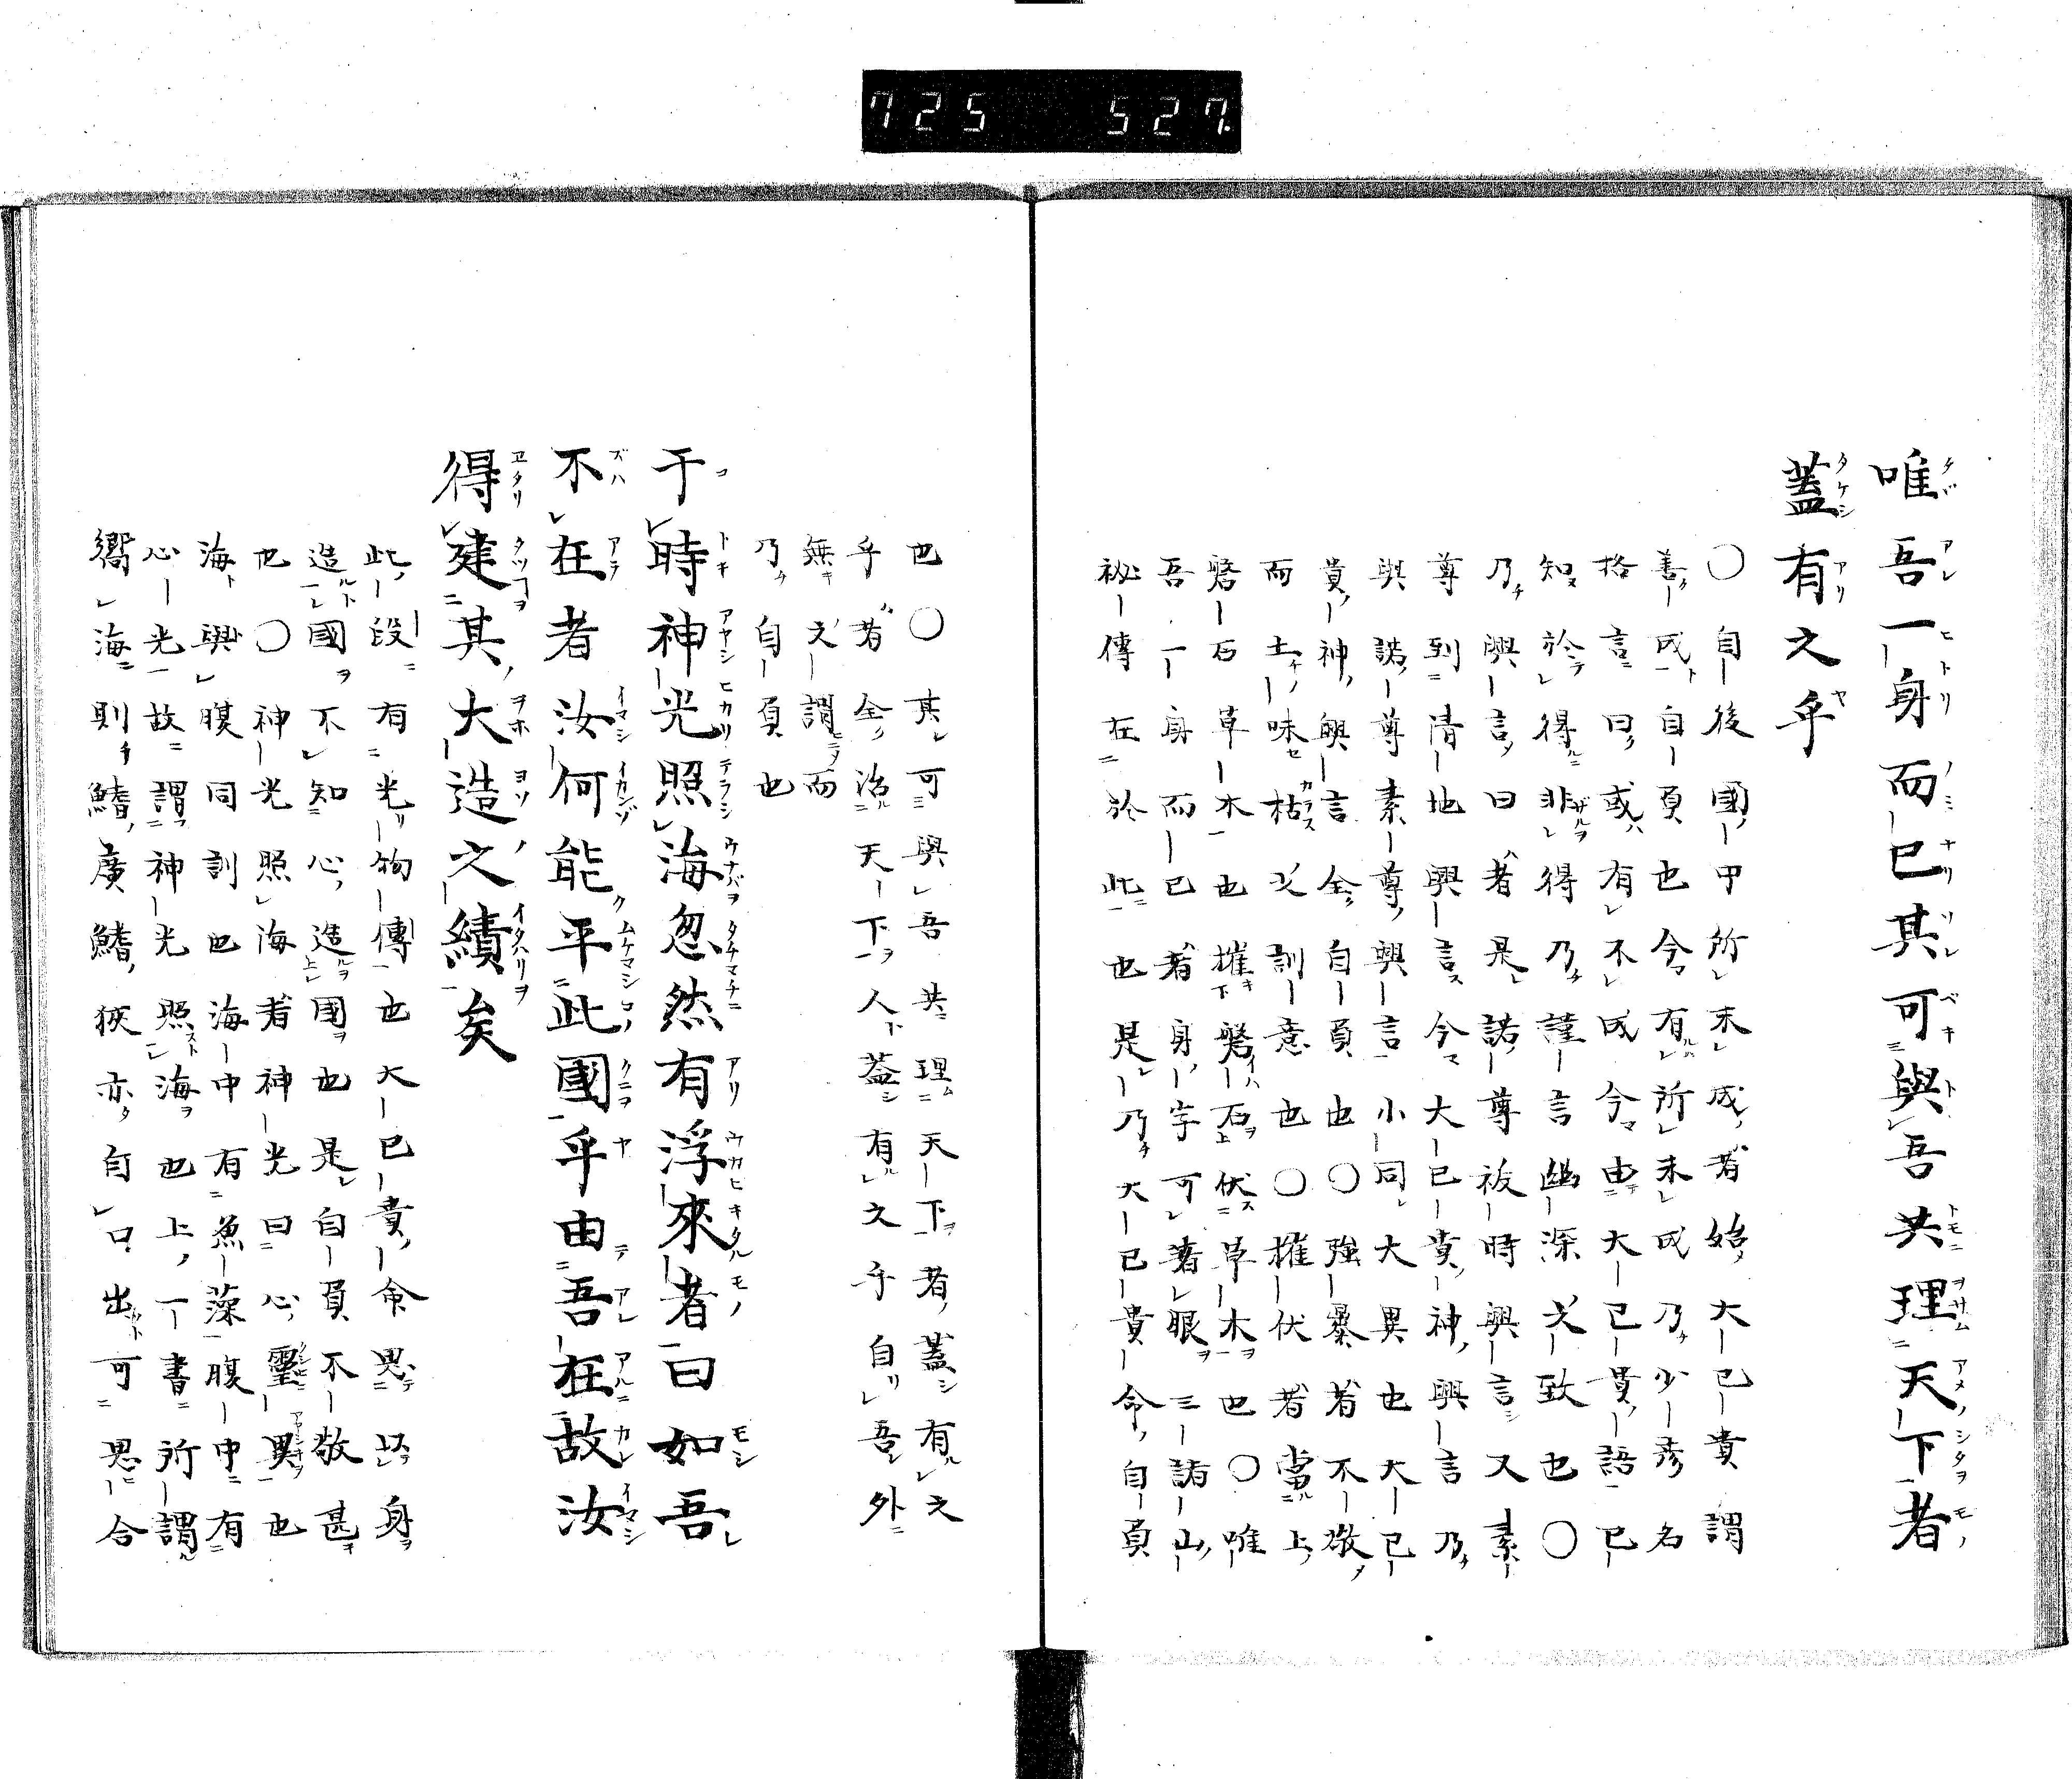 725 527
唯吾一身而已其可與吾共理天下者
蓋有之乎
〇自後國中所未成者始大已貴謂
善成自負也今有所未成乃少彦名
格言曰或有不成今由大已貴語已
知於得非得乃謹言幽深之致也〇
乃興言曰者是諾尊祓時興言又素
尊到清地興言今大已貴神興言乃
與諾尊素尊興言小同大異也大已
貴神興言全自負也〇強暴者不敬
而土味枯之訓意也〇摧伏者當上
磐石草木也摧磐石伏草木也〇唯
吾一身而已者身字可著眼三諸山
祕傳在於此也是乃大已貴命自負
也〇其可與吾共理天下者蓋有之
乎者全治天下人蓋有之乎自吾外
無之謂而
乃自負也
于時神光照海忽然有浮來者曰如吾
不在者汝何能平此國乎由吾在故汝
得建其大造之績矣
此段有光物傳也大已貴命思以身
造國不知心造國也是自負不敬甚
也〇神光照海者神光曰心靈異也
海與腹同訓也海中有魚藻腹中有
心光故謂神光照海也上一書所謂
嚮海則鰭廣鰭狹亦自口出可思合